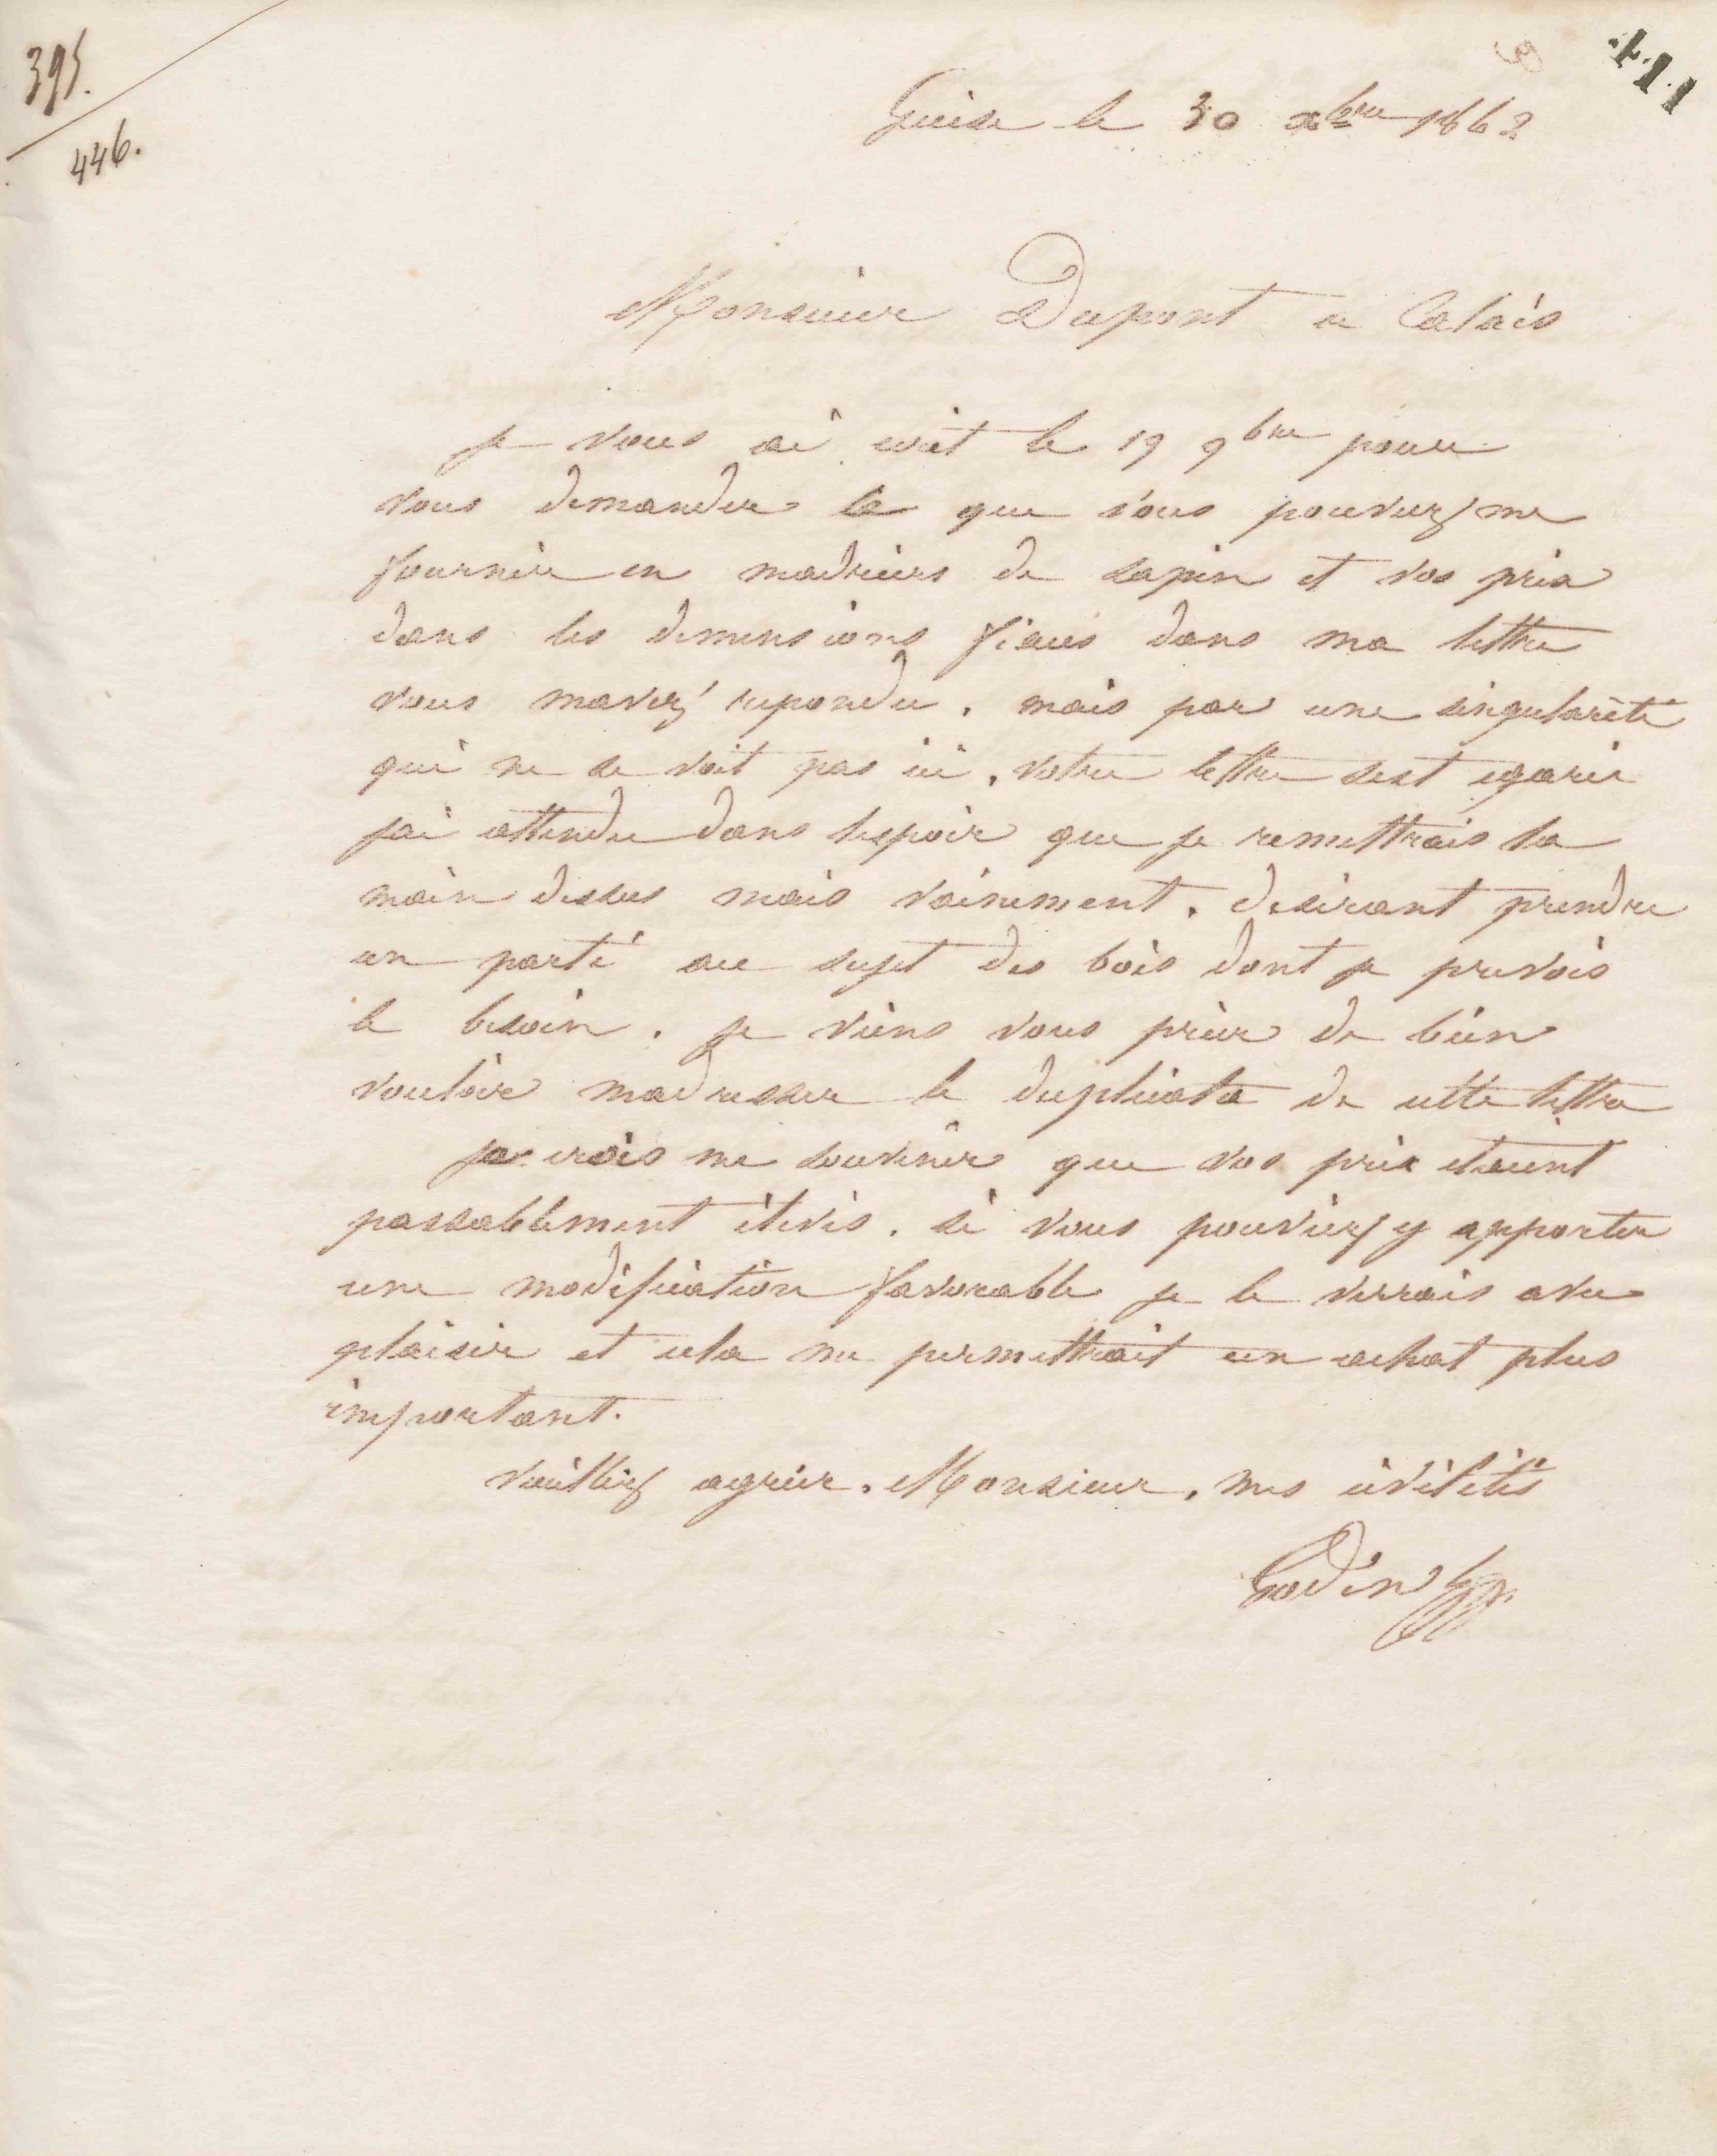 395.
446.
411
Guise le 30 xbre 1862
Monsieur Dupont a Calais
je vous ai ecrit le 19 9bre pour
vous demander ce que vous pouviez me
fournir en madriers de sapin et vos prix
dans les dimensions fixees dans ma lettre
vous mavez repondu. mais par une singularité
qui ne se voit pas ici, votre lettre sest egarée
jai attendu dans lespoir que je remettrais la
main dessus mais vainement. desirant prendre
un parti au sujet des bois dont je prevois
le besoin. je viens vous prier de bien
vouloir madresser le duplicata de cette lettre
je crois me souvenir que vos prix etaient
passablement élevés. si vous pouviez y apporter
une modification favorable je le verrais avec
plaisir et cela me permettrait un achat plus
important.
veuillez agréer. Monsieur, mes civilités
Godin